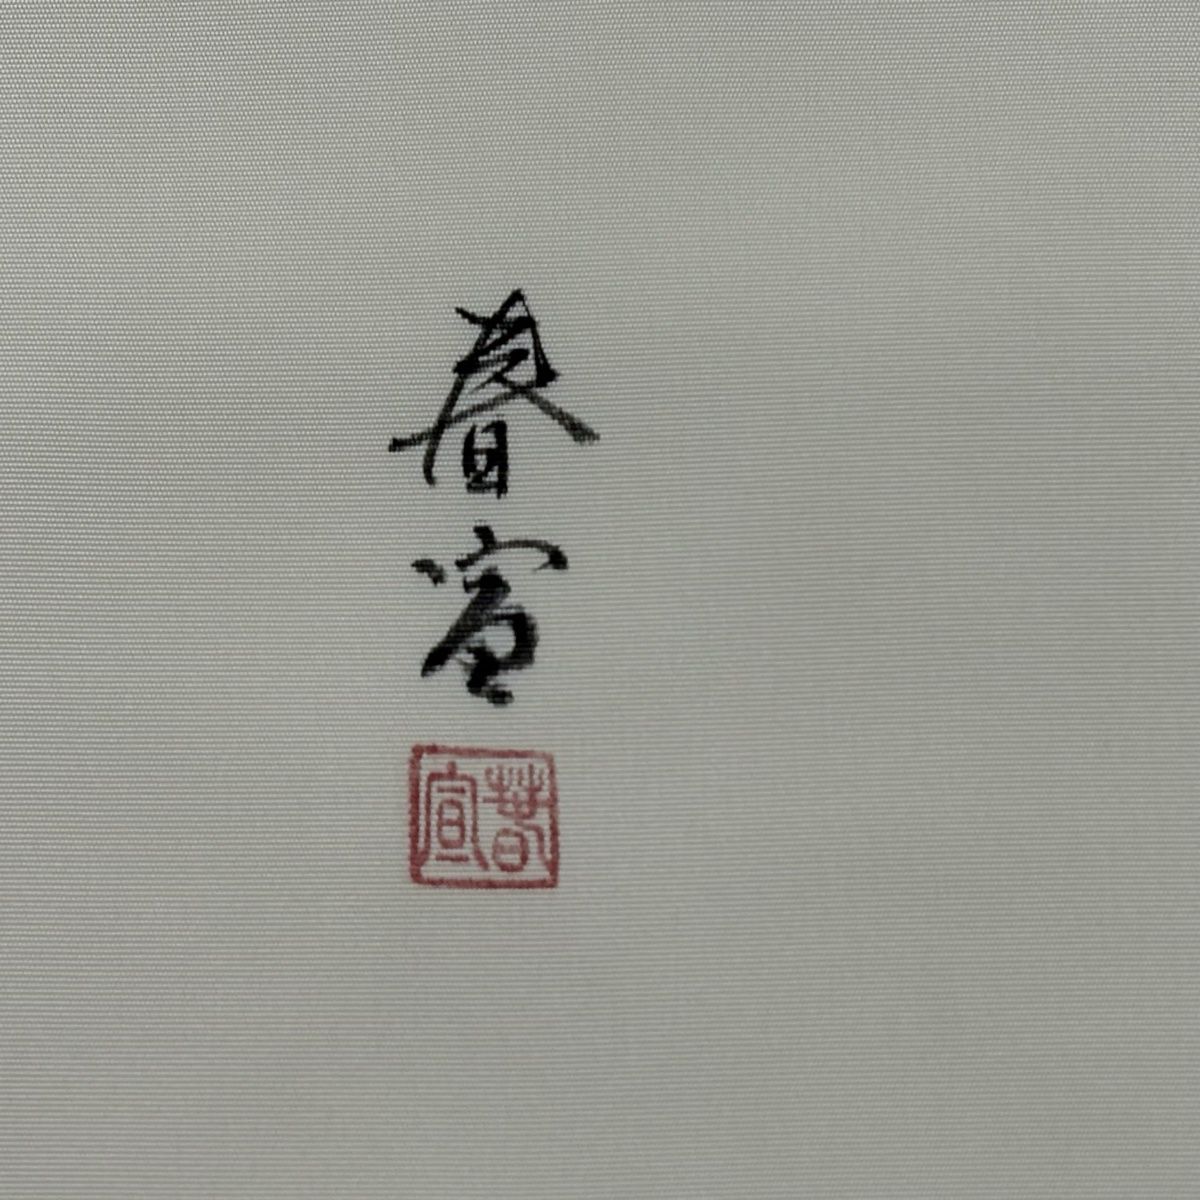 春宣
春宣